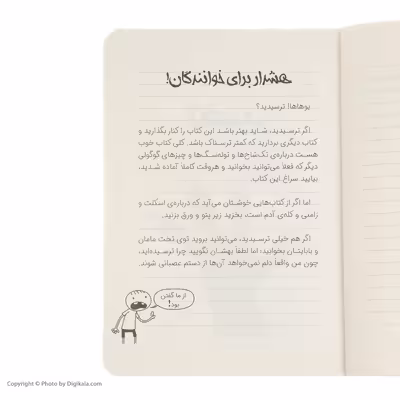 هشدار برای خوانندگان!
بوهاها! ترسیدید؟
اگر ترسیدید، شاید بهتر باشد این کتاب را کنار بگذارید و
کتاب دیگری بردارید که کمتر ترسناک باشد. کلی کتاب خوب
هست درباره‌ی تک‌شاخ‌ها و توله‌سگ‌ها و چیزهای گوگولی
دیگر که فعلاً می‌توانید بخوانید و هروقت کاملاً آماده شدید،
بیایید سراغ این کتاب.
اما اگر از کتاب‌هایی خوشتان می‌آید که درباره‌ی اسکلت و
زامبی و کله‌ی آدم است، بخزید زیر پتو و ورق بزنید.
اگر هم خیلی ترسیدید، می‌توانید بروید توی تخت مامان
و بابایتان بخوابید؛ اما لطفاً بهشان نگویید چرا ترسیده‌اید،
چون من واقعاً دلم نمی‌خواهد آن‌ها از دستم عصبانی شوند.
از ما گفتن
بود!
Copyright © Photo by Digikala.com